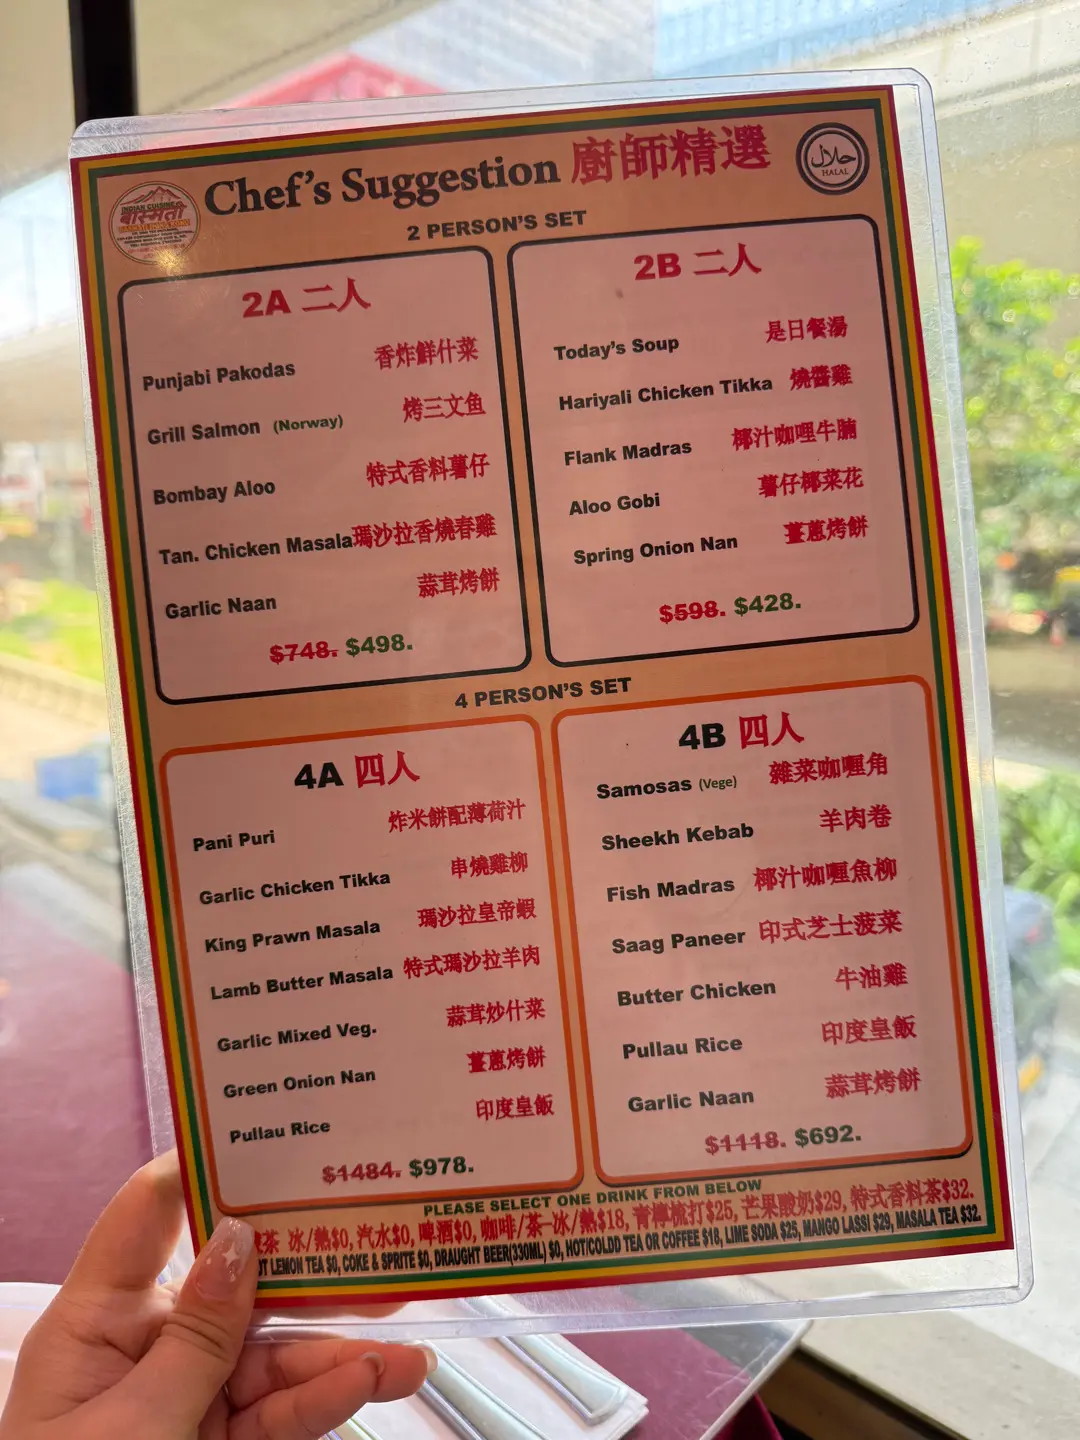 Chef's Suggestion 廚師精選
حلال
HALAL
INDIAN CUISINE
बासमती
2 PERSON'S SET
2A 二人
Punjabi Pakodas 香炸鮮什菜
Grill Salmon (Norway) 烤三文鱼
Bombay Aloo 特式香料薯仔
Tan. Chicken Masala瑪沙拉香燒春雞
Garlic Naan 蒜茸烤餅
$748. $498.
2B 二人
Today's Soup 是日餐湯
Hariyali Chicken Tikka 燒醬雞
Flank Madras 椰汁咖哩牛腩
Aloo Gobi 薯仔椰菜花
Spring Onion Nan 薑蔥烤餅
$598. $428.
4 PERSON'S SET
4A 四人
Pani Puri 炸米餅配薄荷汁
Garlic Chicken Tikka 串燒雞柳
King Prawn Masala 瑪沙拉皇帝蝦
Lamb Butter Masala 特式瑪沙拉羊肉
Garlic Mixed Veg. 蒜茸炒什菜
Green Onion Nan 薑蔥烤餅
Pullau Rice 印度皇飯
$1484. $978.
4B 四人
Samosas (Vege) 雜菜咖喱角
Sheekh Kebab 羊肉卷
Fish Madras 椰汁咖喱魚柳
Saag Paneer 印式芝士菠菜
Butter Chicken 牛油雞
Pullau Rice 印度皇飯
Garlic Naan 蒜茸烤餅
$1118. $692.
PLEASE SELECT ONE DRINK FROM BELOW
茶 冰/熱$0, 汽水$0, 啤酒$0, 咖啡/茶-冰/熱$18, 青檸梳打$25, 芒果酸奶$29, 特式香料茶$32.
LEMON TEA $0, COKE & SPRITE $0, DRAUGHT BEER(330ML) $0, HOT/COLDD TEA OR COFFEE $18, LIME SODA $25, MANGO LASSI $29, MASALA TEA $32.